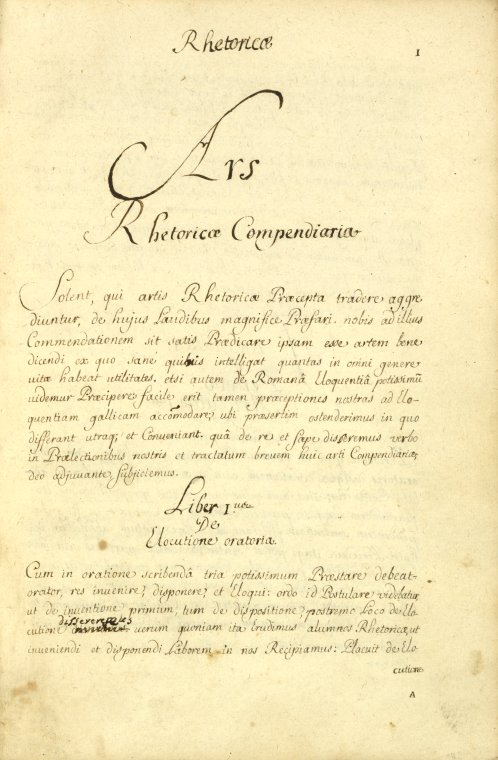 Rhetoricæ
1
Ars
Rhetoricæ Compendiaria
Solent, qui artis Rhetoricæ Præcepta tradere aggre
diuntur, de hujus Laudibus magnifice Præfari. nobis ad illius
Commendationem sit satis Prædicare ipsam esse artem bene
dicendi ex quo sané quibus intelligat quantas in omni genere
vitæ habeat utilitates. etsi autem de Romanâ Eloquentiâ potissimū
videmur Præcipere, facile erit tamen præceptiones nostras ad Elo
quentiam gallicam accōmodare, ubi præsertim ostenderimus in quo
differant utraq; et Conveniant. quâ de re et sæpe disseremus verbo
in Prælectionibus nostris et tractatum brevem huic arti Compendiariæ,
deo adjuvante, subjiciemus.
Liber 1us
De
Elocutione oratoria.
Cum in oratione scribendâ tria potissimum Præstare debeat
orator, res invenire, disponere, et eloqui: ordo id Postulare videbatur
ut de inventione primùm, tum de dispositione, postremo Loco de Elo
cutione verum quoniam ita Erudimus alumnos Rhetoricæ, ut
inveniendi et disponendi Laborem in nos Recipiamus: Placuit de Elo
cutione
A